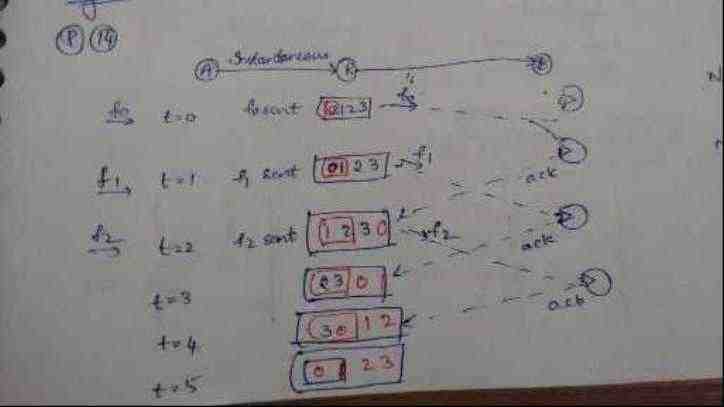 P 14
A Instantaneous R B
f0 t=0 f0 sent 0123 f0
f1 t=1 f1 sent 0123 f1
ack
f2 t=2 f2 sent 1230 f2
ack
t=3 230
ack
t=4 3012
t=5 0123